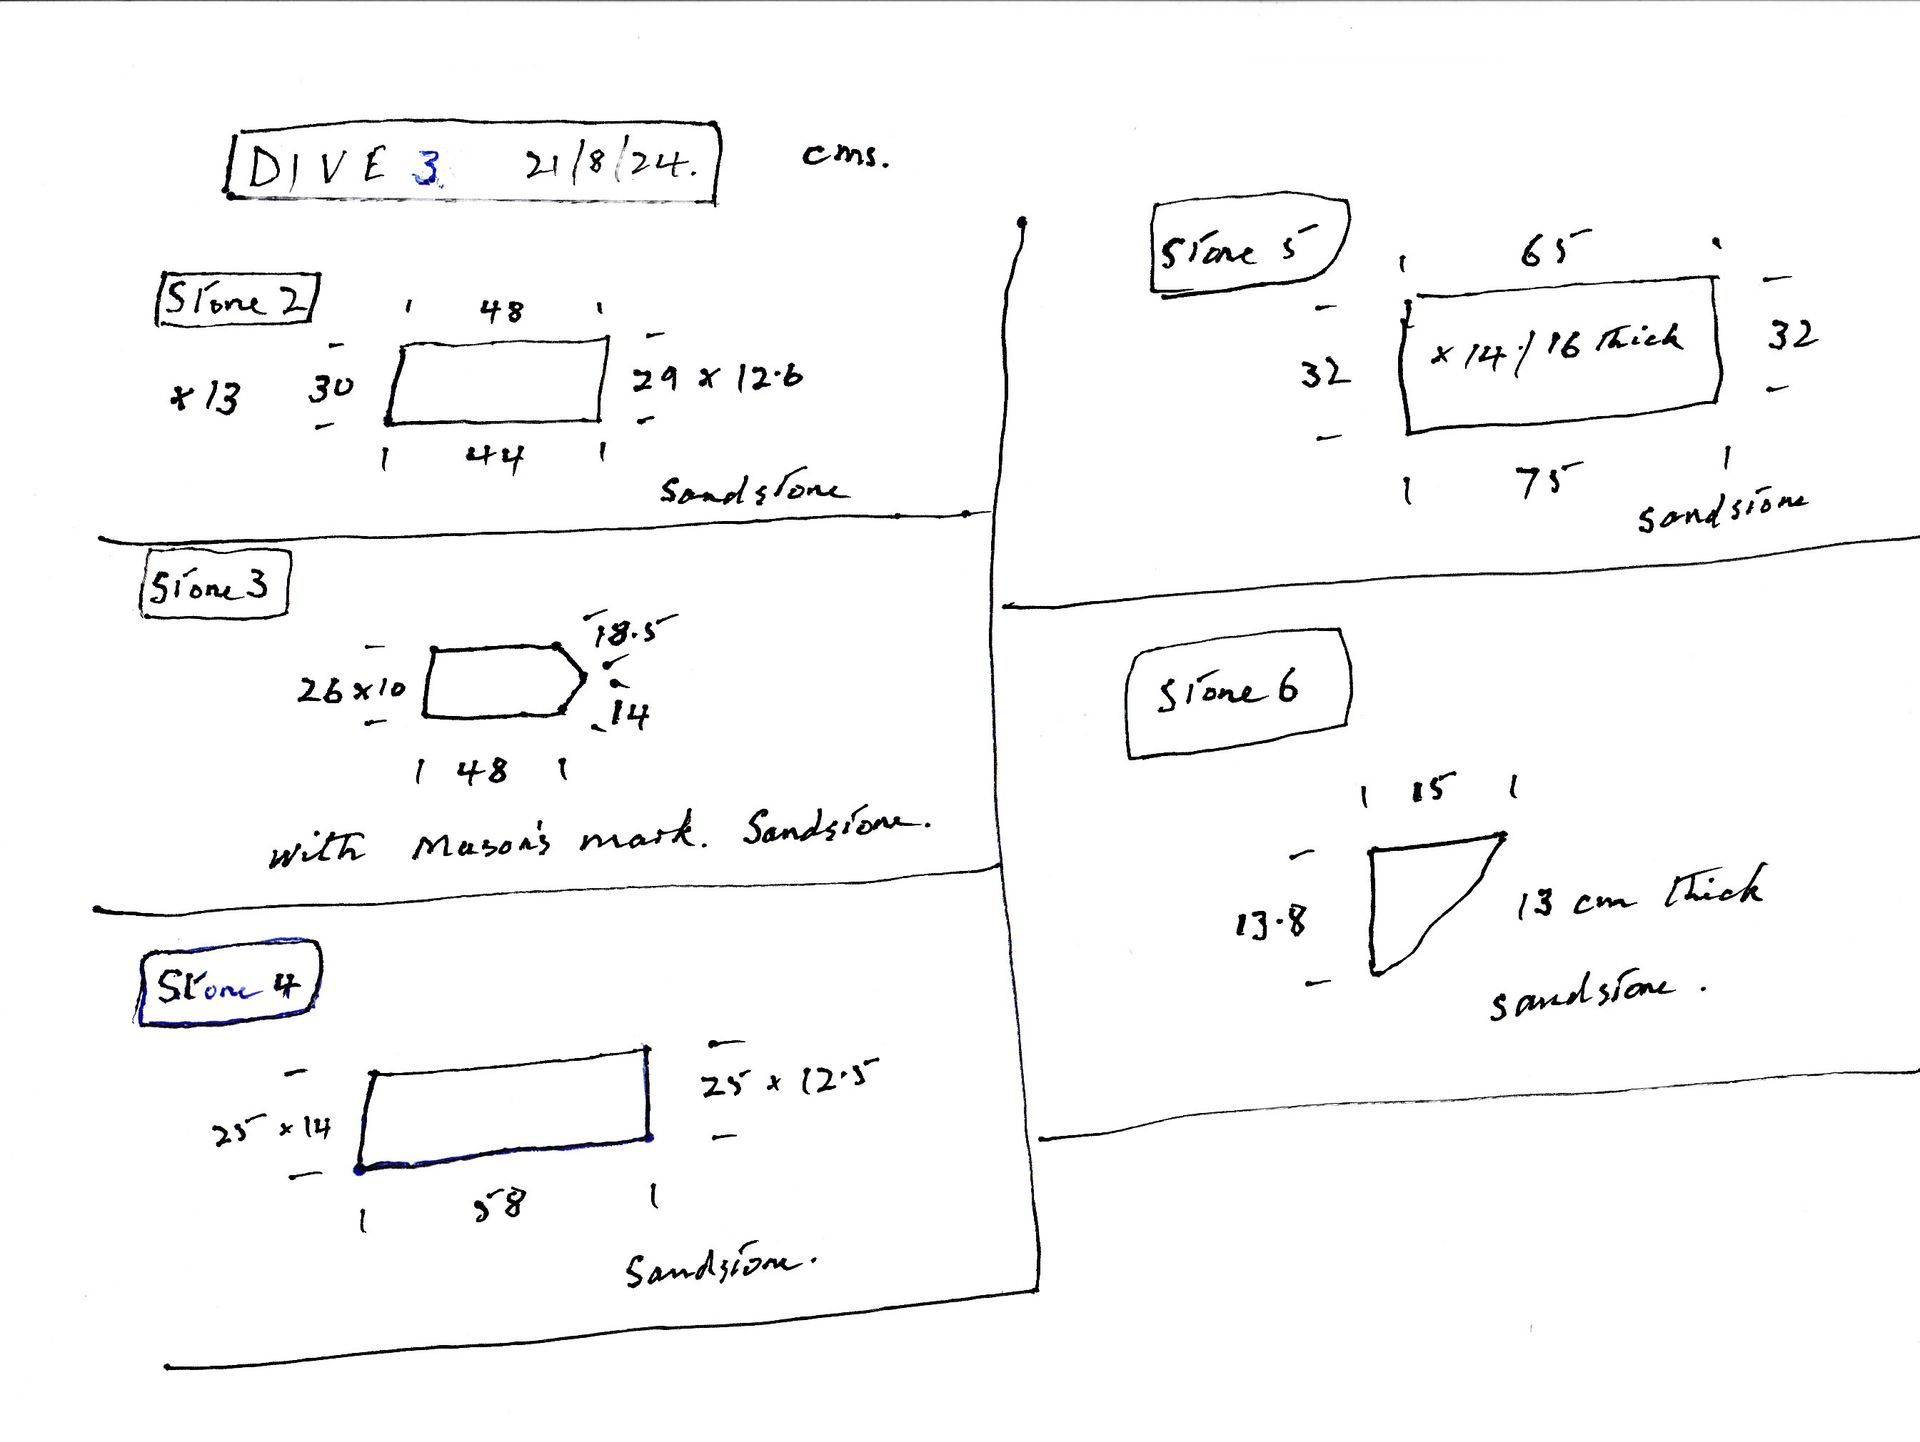 DIVE 3. 21/8/24. cms.
Stone 2
48
× 13 30 29 × 12.6
44
Sandstone
Stone 3
18.5
26 × 10
14
48
with Mason's mark. Sandstone.
Stone 4
25 × 14 25 × 12.5
58
Sandstone.
Stone 5
65
32 × 14./16 thick 32
75
Sandstone
Stone 6
15
13.8 13 cm thick
sandstone.